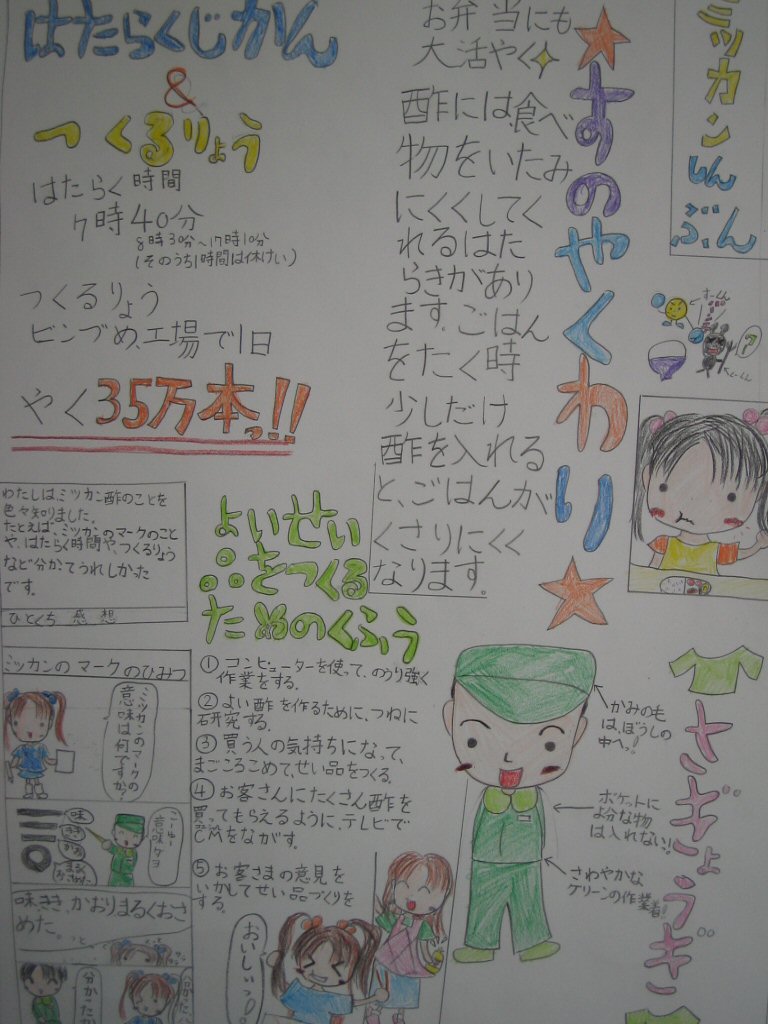 ミッカン
しんぶん
すーくん
すのやくわり
お弁当にも
大活やく
酢には食べ
物をいたみ
にくくしてく
れるはた
らきがあり
ます。ごはん
をたく時
少しだけ
酢を入れる
と、ごはんが
くさりにくく
なります。
はたらくじかん
&
つくるりょう
はたらく時間
7時40分
8時30分〜17時10分
(そのうち1時間は休けい)
つくるりょう
ビンづめ工場で1日
やく35万本っ!!
わたしは、ミツカン酢のことを
色々知りました。
たとえば、ミツカンのマークのこと
や、はたらく時間や、つくるりょう
など分かてうれしかった
です。
ひとくち感想
よいせい
品をつくる
ためのくふう
① コンピューターを使って、のうり強く
作業をする。
② よい酢を作るために、つねに
研究する。
③ 買う人の気持ちになって、
まごころこめて、せい品をつくる。
④ お客さんにたくさん酢を
買ってもらえるように、テレビで
CMをながす。
⑤ お客さまの意見を
いかしてせい品づくりを
する。
おいしいっ!
さぎょうぎ
かみのも
は、ぼうしの
中へっ!
ポケットに
よ分な物
は入れない!
さわやかな
グリーンの作業着!
ミツカンのマークのひみつ
ミツカンのマークの
意味は何ですか?
味
きき
かおり
まるく
おさめた
こーゆー
意味ケヨ
味きき、かおりまるくおさ
めた。
分かったか